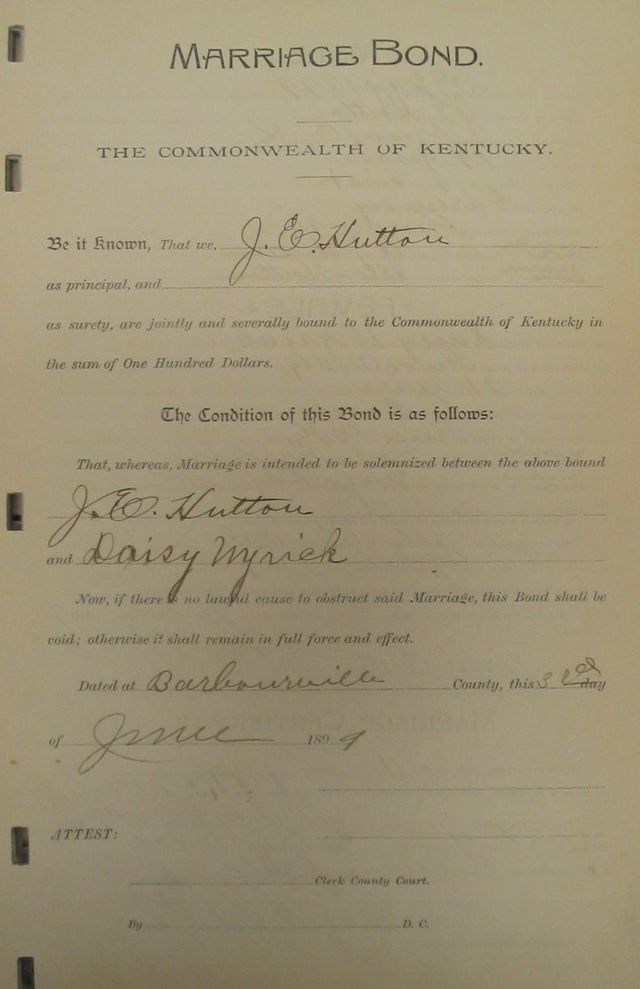 MARRIAGE BOND.
THE COMMONWEALTH OF KENTUCKY.
Be it Known, That we, J. E. Hutton
as principal, and
as surety, are jointly and severally bound to the Commonwealth of Kentucky in
the sum of One Hundred Dollars.
The Condition of this Bond is as follows:
That, whereas, Marriage is intended to be solemnized between the above bound
J. E. Hutton
and Daisy Wyrick
Now, if there is no lawful cause to obstruct said Marriage, this Bond shall be
void; otherwise it shall remain in full force and effect.
Dated at Barbourville County, this 3rd day
of June 1899
ATTEST:
Clerk County Court.
By D. C.